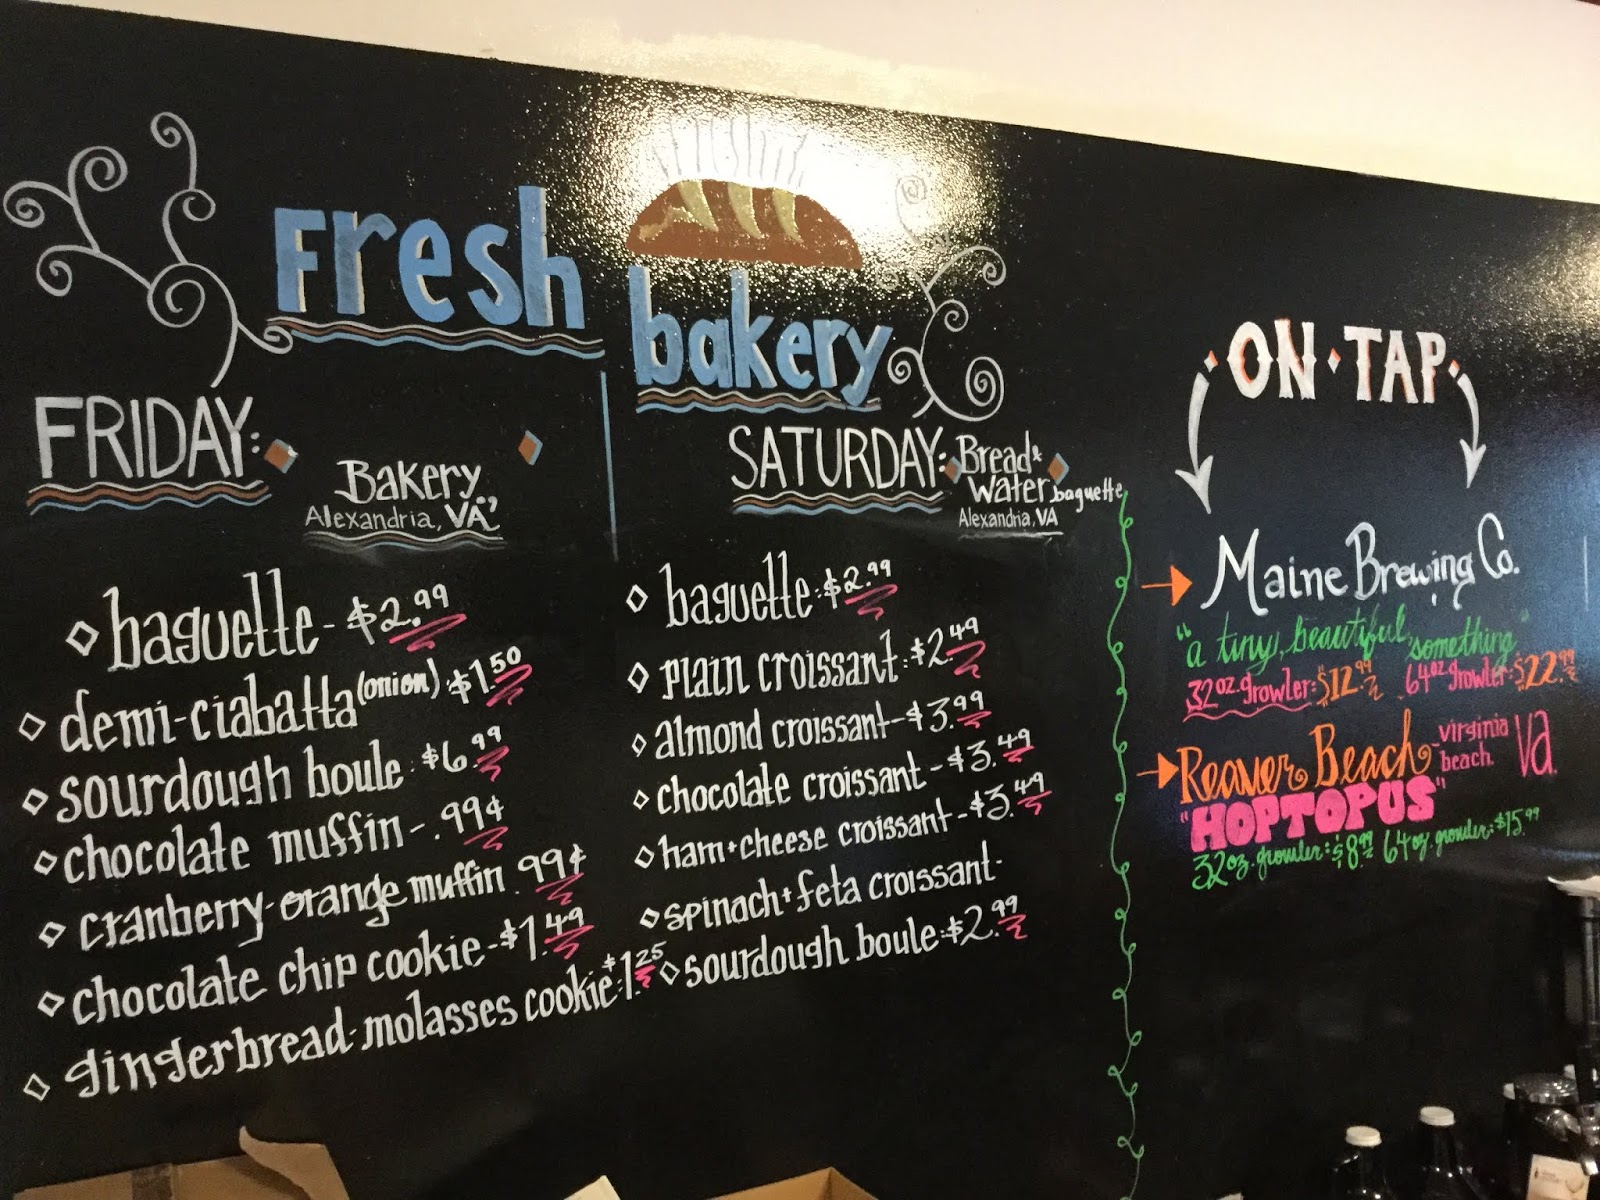 Fresh
bakery
FRIDAY:
Bakery
Alexandria, VA
baguette - $2.99
demi-ciabatta (onion): $1.50
sourdough boule: $6.99
chocolate muffin - .99¢
cranberry-orange muffin .99¢
chocolate chip cookie - $1.49
gingerbread-molasses cookie: $1.25
SATURDAY:
Bread &
Water
baguette
Alexandria, VA
baguette: $2.99
plain croissant: $2.49
almond croissant - $3.99
chocolate croissant - $3.49
ham + cheese croissant - $3.49
spinach + feta croissant -
sourdough boule: $2.99
ON · TAP
Maine Brewing Co.
"a tiny, beautiful, something"
32oz. growler: $12.99 64oz growler: $22.99
Reaver Beach - virginia beach. VA.
"HOPTOPUS"
32oz. growler: $8.99 64oz. growler: $15.99